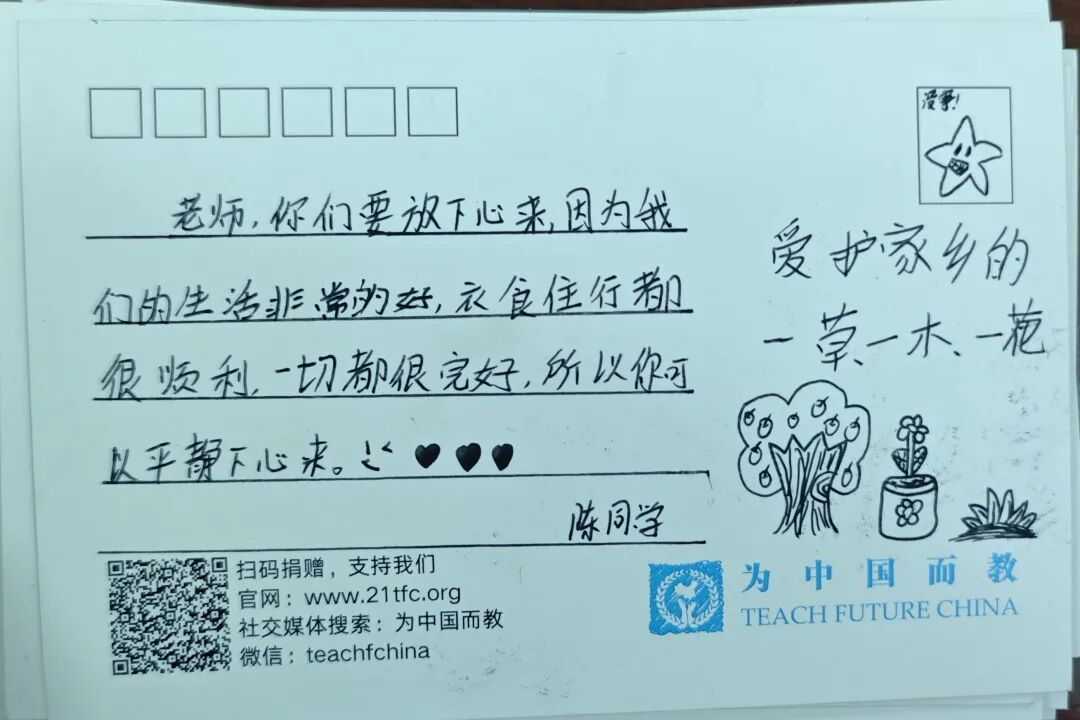 没事!
老师,你们要放下心来,因为我
们的生活非常的好,衣食住行都
很顺利,一切都很完好,所以你可
以平静下心来。
陈同学
爱护家乡的
一草、一木、一花
扫码捐赠,支持我们
官网:www.21tfc.org
社交媒体搜索:为中国而教
微信:teachfchina
为中国而教
TEACH FUTURE CHINA